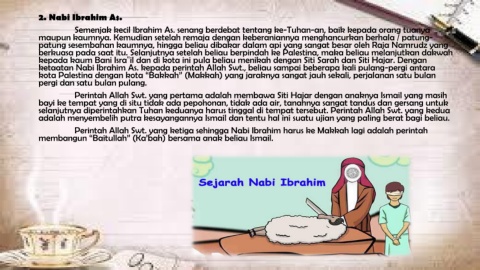 2. Nabi Ibrahim As.
Semenjak kecil Ibrahim As. senang berdebat tentang ke-Tuhan-an, baik kepada orang tuanya
maupun kaumnya. Kemudian setelah remaja dengan keberaniannya menghancurkan berhala / patung-
patung sesembahan kaumnya, hingga beliau dibakar dalam api yang sangat besar oleh Raja Namrudz yang
berkuasa pada saat itu. Selanjutnya setelah beliau berpindah ke Palestina, maka beliau melanjutkan dakwah
kepada kaum Bani Isra`il dan di kota ini pula beliau menikah dengan Siti Sarah dan Siti Hajar. Dengan
ketaatan Nabi Ibrahim As. kepada perintah Allah Swt., beliau sampai beberapa kali pulang-pergi antara
kota Palestina dengan kota “Bakkah” (Makkah) yang jaraknya sangat jauh sekali, perjalanan satu bulan
pergi dan satu bulan pulang.
Perintah Allah Swt. yang pertama adalah membawa Siti Hajar dengan anaknya Ismail yang masih
bayi ke tempat yg di situ tidak ada pepohonan, tidak ada air, tanahnya sangat tandus dan gersang untuk
selanjutnya diperintahkan Tuhan keduanya harus tinggal di tempat tersebut. Perintah Allah Swt. yang kedua
adalah menyembelih putra kesayangannya Ismail dan tentu hal ini suatu ujian yang paling berat bagi beliau.
Perintah Allah Swt. yang ketiga sehingga Nabi Ibrahim harus ke Makkah lagi adalah perintah
membangun “Baitullah” (Ka’bah) bersama anak beliau Ismail.
Sejarah Nabi Ibrahim